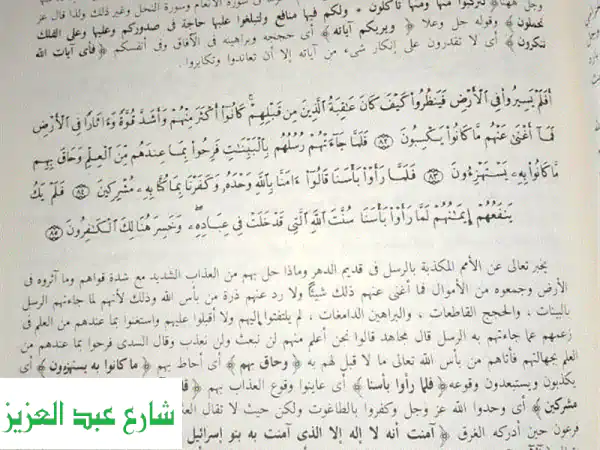 وجل ههنا ﴿لتركبوا منها ومنها تأكلون * ولكم فيها منافع ولتبلغوا عليها حاجة في صدوركم وعليها وعلى الفلك
تحملون﴾ وقوله جل وعلا ﴿ويريكم آياته﴾ أى حججه وبراهينه في الآفاق وفى أنفسكم ﴿فأى آيات الله
تنكرون﴾ أى لا تقدرون على إنكار شىء من آياته إلا أن تعاندوا وتكابروا.
أَفَلَمْ يَسِيرُوا۟ فِى ٱلْأَرْضِ فَيَنظُرُوا۟ كَيْفَ كَانَ عَٰقِبَةُ ٱلَّذِينَ مِن قَبْلِهِمْ ۚ كَانُوٓا۟ أَكْثَرَ مِنْهُمْ وَأَشَدَّ قُوَّةً وَءَاثَارًا فِى ٱلْأَرْضِ
فَمَآ أَغْنَىٰ عَنْهُم مَّا كَانُوا۟ يَكْسِبُونَ ﴿٨٢﴾ فَلَمَّا جَآءَتْهُمْ رُسُلُهُم بِٱلْبَيِّنَٰتِ فَرِحُوا۟ بِمَا عِندَهُم مِّنَ ٱلْعِلْمِ وَحَاقَ بِهِم
مَّا كَانُوا۟ بِهِۦ يَسْتَهْزِءُونَ ﴿٨٣﴾ فَلَمَّا رَأَوْا۟ بَأْسَنَا قَالُوٓا۟ ءَامَنَّا بِٱللَّهِ وَحْدَهُۥ وَكَفَرْنَا بِمَا كُنَّا بِهِۦ مُشْرِكِينَ ﴿٨٤﴾ فَلَمْ يَكُ
يَنفَعُهُمْ إِيمَٰنُهُمْ لَمَّا رَأَوْا۟ بَأْسَنَا ۖ سُنَّتَ ٱللَّهِ ٱلَّتِى قَدْ خَلَتْ فِى عِبَادِهِۦ ۖ وَخَسِرَ هُنَالِكَ ٱلْكَٰفِرُونَ ﴿٨٥﴾
يخبر تعالى عن الأمم المكذبة بالرسل فى قديم الدهر وماذا حل بهم من العذاب الشديد مع شدة قواهم وما آثروه فى
الأرض وجمعوه من الأموال فما أغنى عنهم ذلك شيئًا ولا رد عنهم ذرة من بأس الله وذلك لأنهم لما جاءتهم الرسل
بالبينات ، والحجج القاطعات ، والبراهين الدامغات ، لم يلتفتوا إليهم ولا أقبلوا عليهم واستغنوا بما عندهم من العلم فى
زعمهم عما جاءتهم به الرسل قال مجاهد قالوا نحن أعلم منهم لن نبعث ولن نعذب وقال السدى فرحوا بما عندهم من
العلم بجهالتهم فأتاهم من بأس الله تعالى ما لا قبل لهم به ﴿وحاق بهم﴾ أى أحاط بهم ﴿ما كانوا به يستهزءون﴾ أى
يكذبون ويستبعدون وقوعه ﴿فلما رأوا بأسنا﴾ أى عاينوا وقوع العذاب بهم
مشركين﴾ أى وحدوا الله عز وجل وكفروا بالطاغوت ولكن حيث لا تقال
فرعون حين أدركه الغرق ﴿آمنت أنه لا إله إلا الذى آمنت به بنو إسرائيل
شارع عبد العزيز